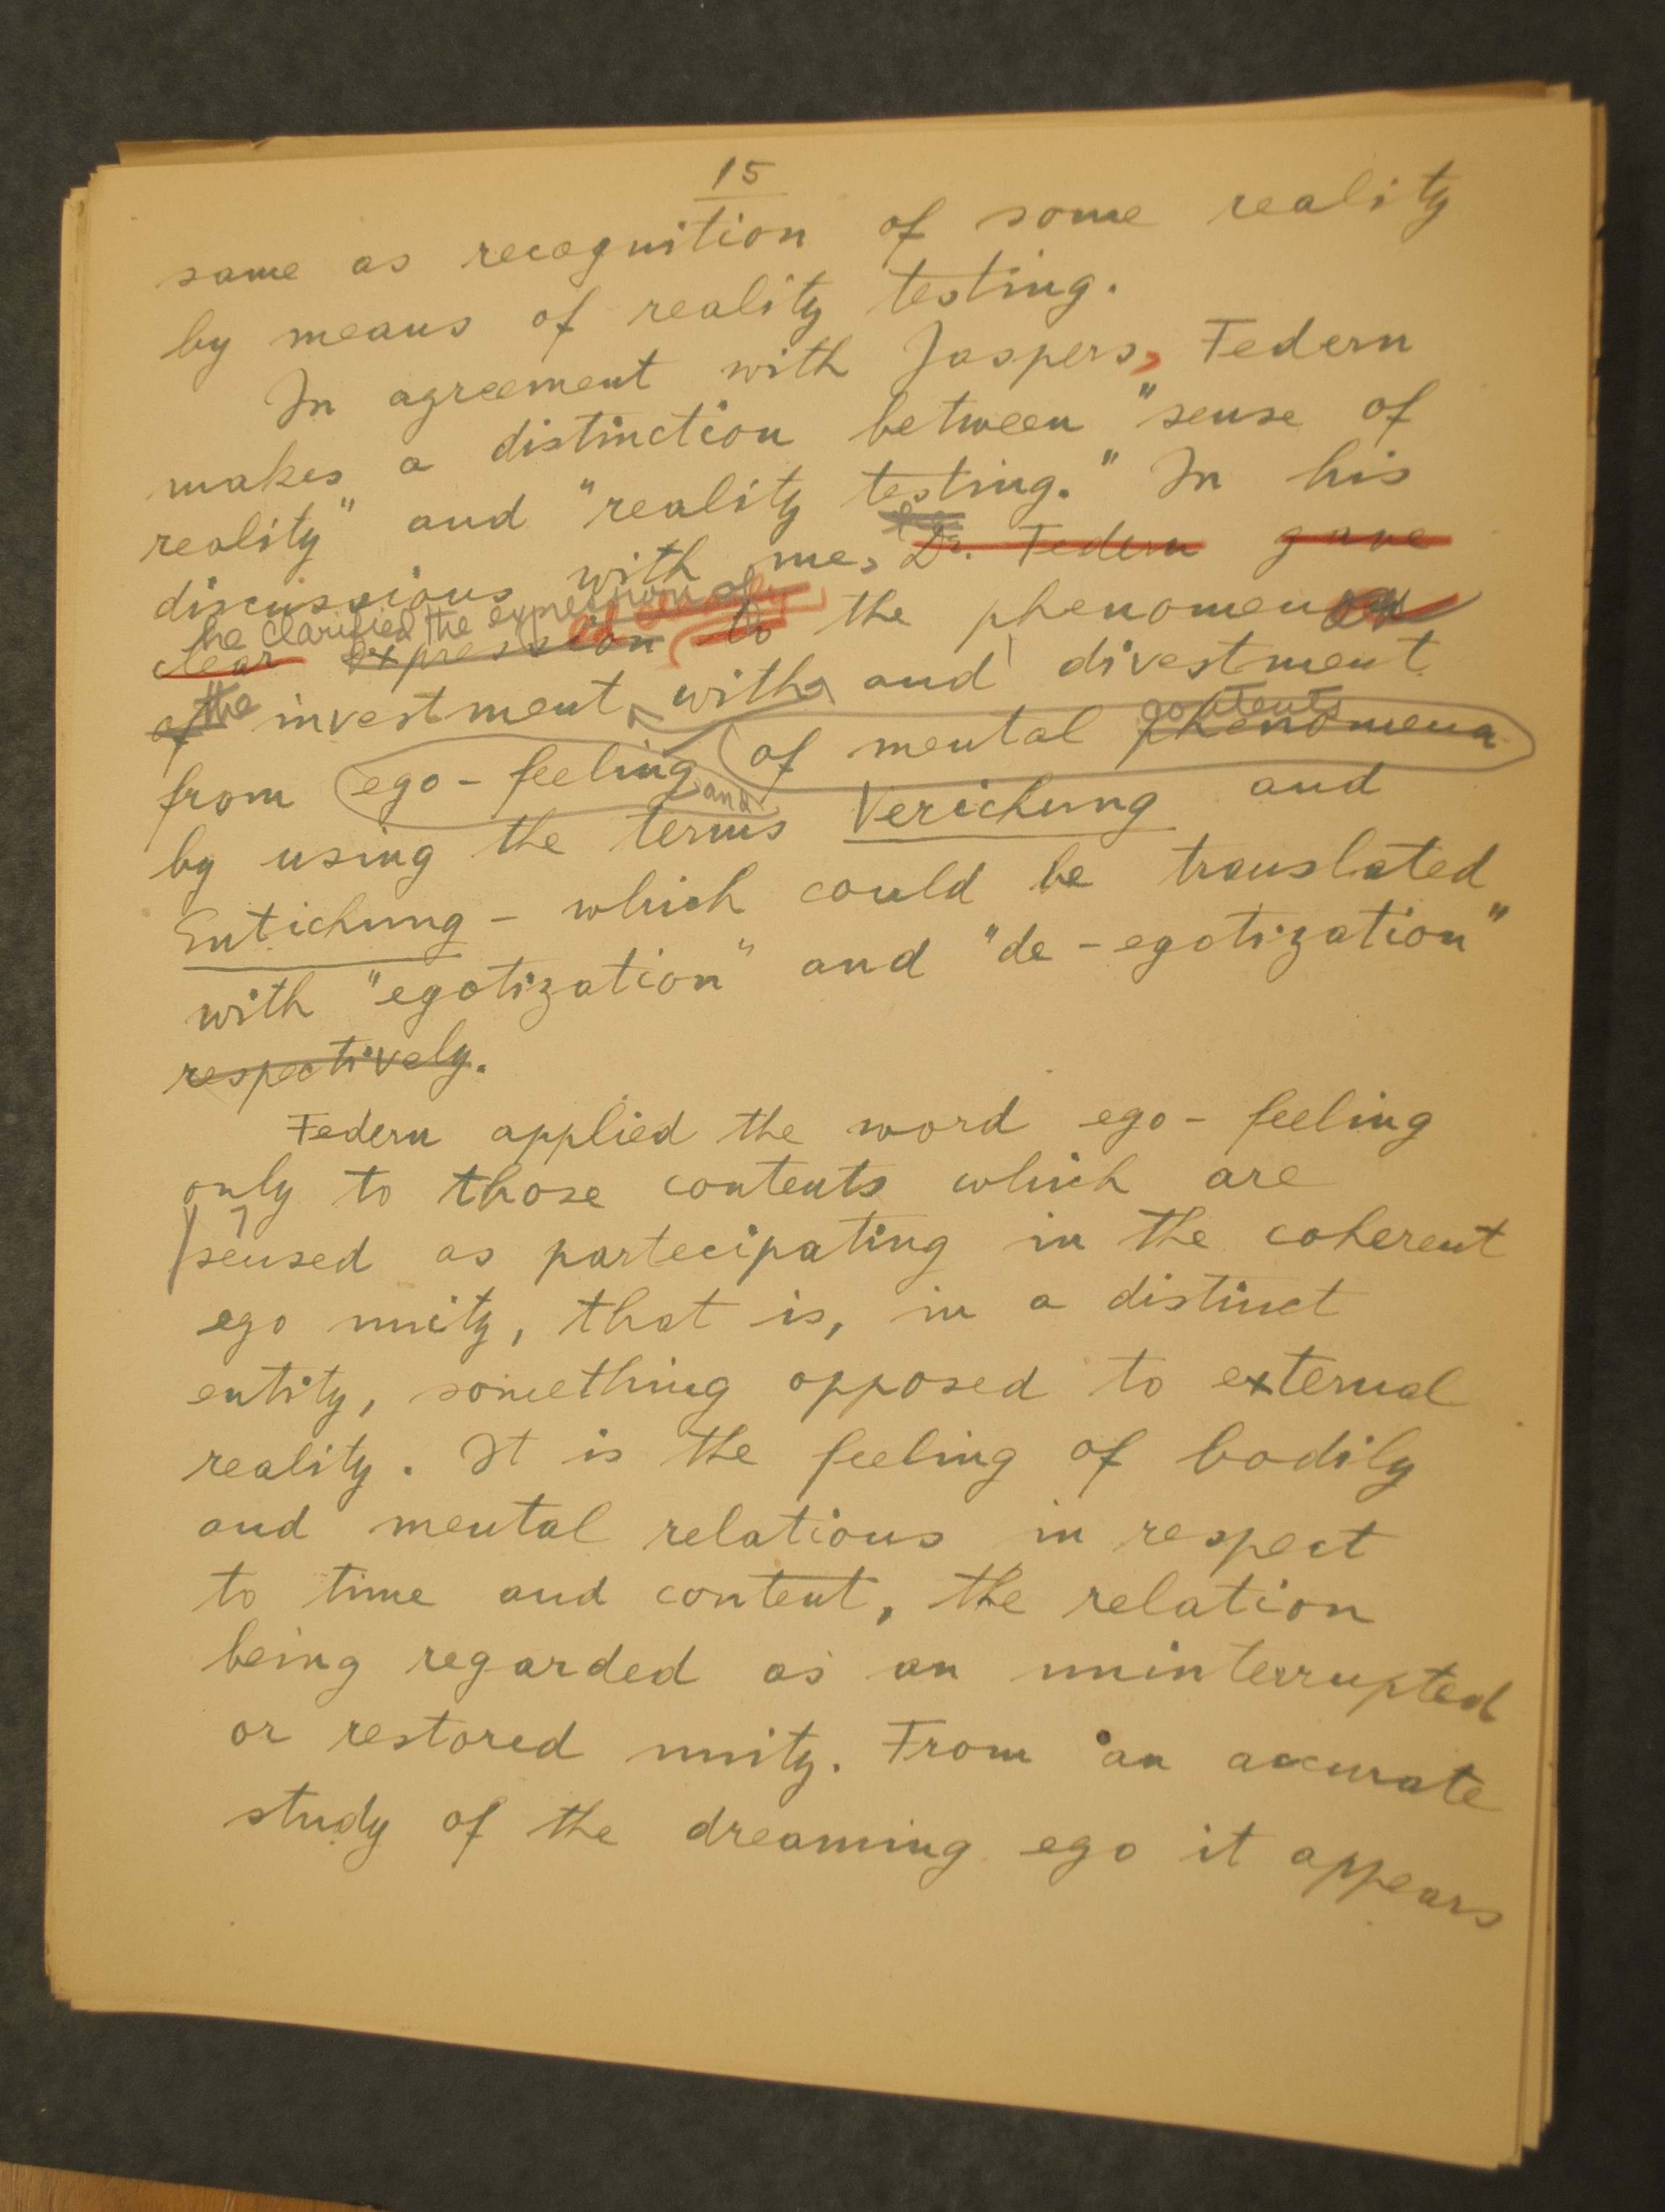 15
same as recognition of some reality
by means of reality testing.
In agreement with Jaspers, Federn
makes a distinction between "sense of
reality" and "reality testing." In his
discussions with me, Dr. Federn gave
he clarified the expression of
clear expression to the phenomenon
of the investment with and divestment
contents
from ego-feeling of mental phenomena
and
by using the terms Verichung and
Entichung - which could be translated
with "egotization" and "de-egotization"
respectively.
Federn applied the word ego-feeling
only to those contents which are
sensed as partecipating in the coherent
ego unity, that is, in a distinct
entity, something opposed to external
reality. It is the feeling of bodily
and mental relations in respect
to time and content, the relation
being regarded as an uninterrupted
or restored unity. From an accurate
study of the dreaming ego it appears